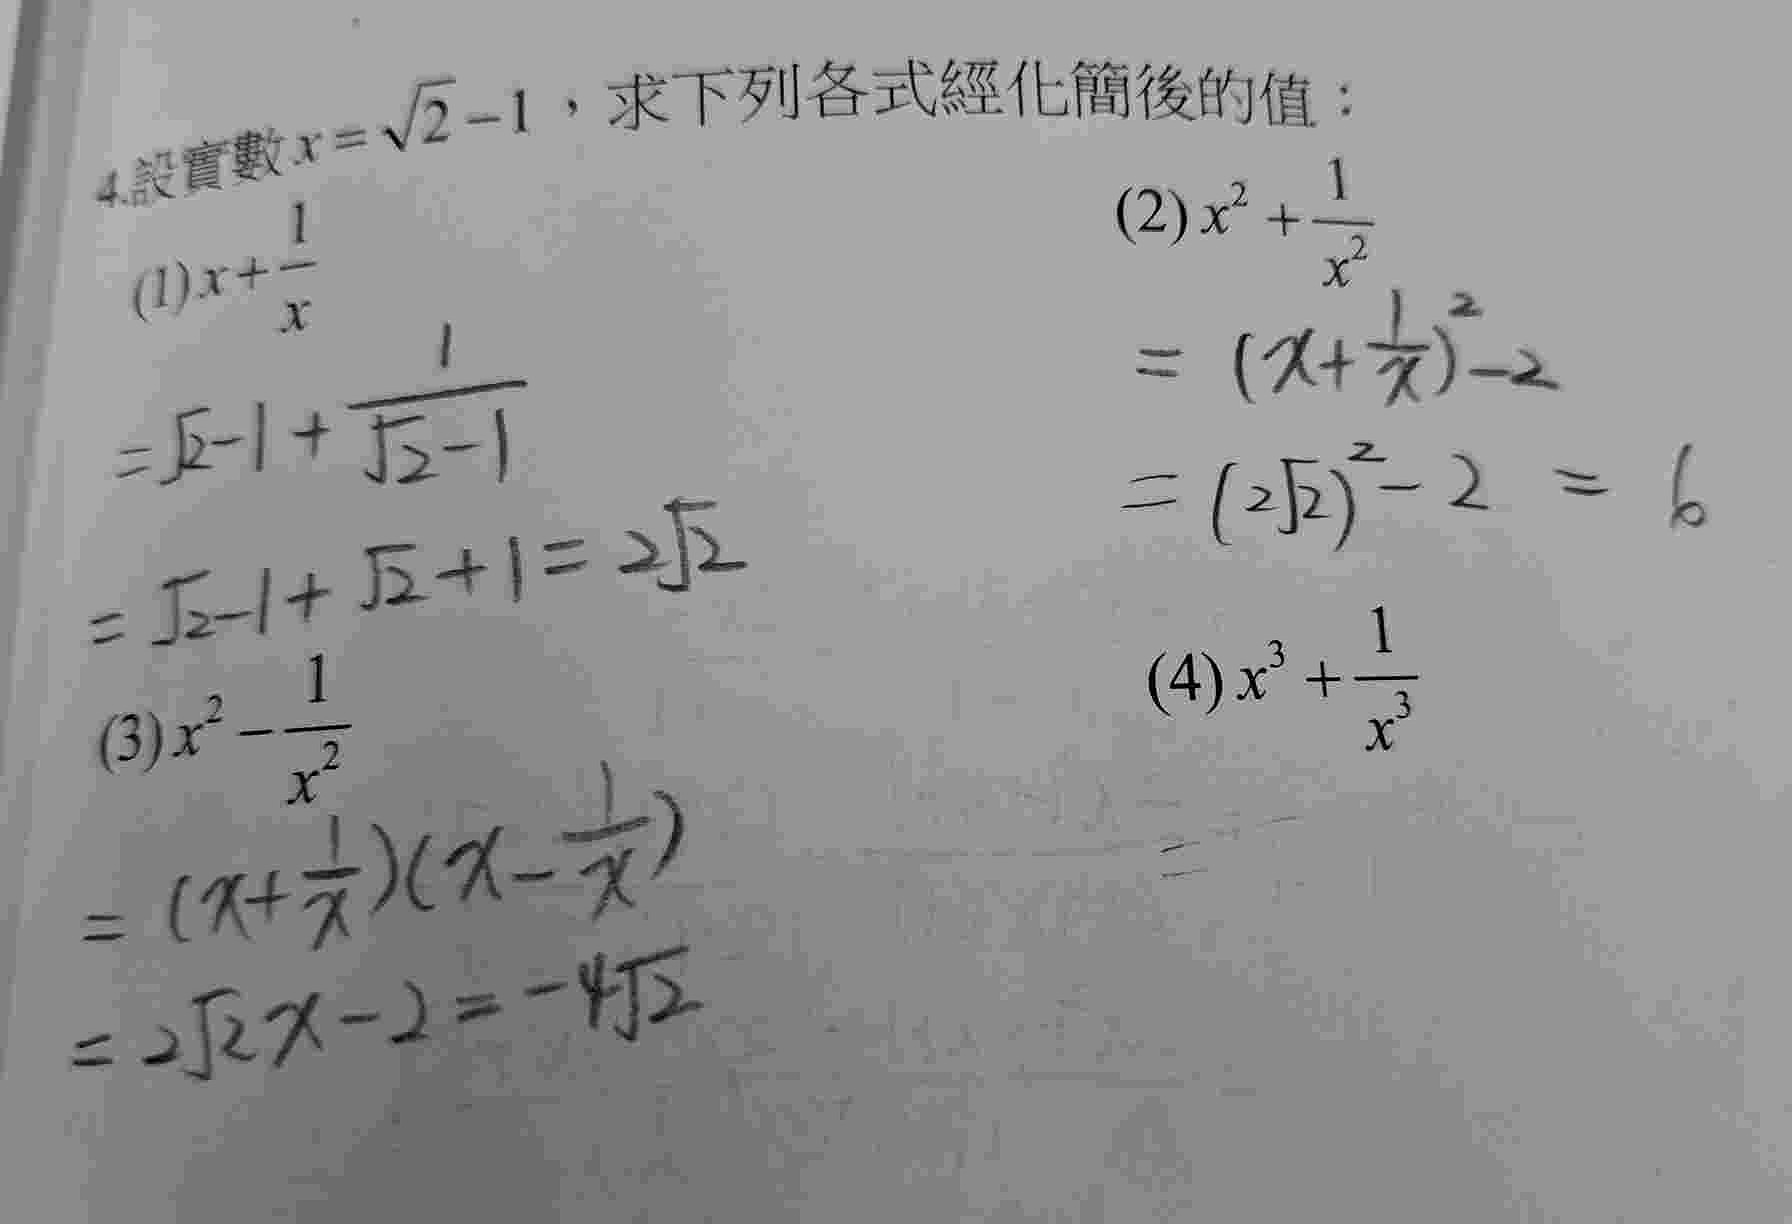 4.設實數 x = √2 − 1，求下列各式經化簡後的值：
(1) x + 1/x
= √2 - 1 + 1/(√2 - 1)
= √2 - 1 + √2 + 1 = 2√2
(2) x² + 1/x²
= (x + 1/x)² - 2
= (2√2)² - 2 = 6
(3) x² − 1/x²
= (x + 1/x)(x - 1/x)
= 2√2 x - 2 = -4√2
(4) x³ + 1/x³
=